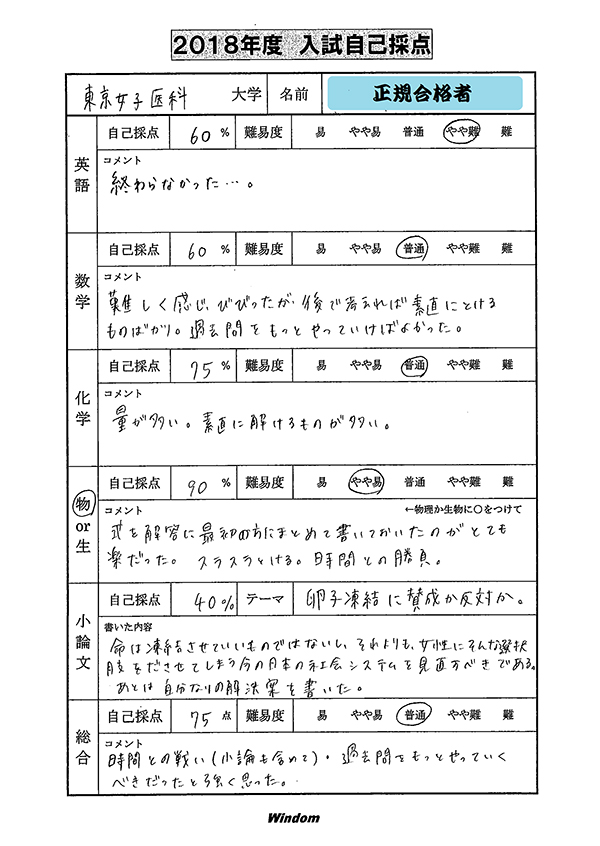 2018年度 入試自己採点
東京女子医科 大学 名前 正規合格者
英語
自己採点 60 % 難易度 易 やや易 普通 やや難 難
コメント
終わらなかった…。
数学
自己採点 60 % 難易度 易 やや易 普通 やや難 難
コメント
難しく感じ、びびったが、後で考えれば素直にとける
ものばかり。過去問をもっとやっていけばよかった。
化学
自己採点 75 % 難易度 易 やや易 普通 やや難 難
コメント
量が多い。素直に解けるものが多い。
物or生
自己採点 90 % 難易度 易 やや易 普通 やや難 難
コメント ←物理か生物に○をつけて
式を解答に最初の方にまとめて書いておいたのがとても
楽だった。 スラスラとける。時間との勝負。
小論文
自己採点 40% テーマ 卵子凍結に賛成か反対か。
書いた内容
命は凍結させていいものではないし、それよりも、女性にそんな選択
肢をださせてしまう今の日本の社会システムを見直すべきである。
あとは自分なりの解決案を書いた。
総合
自己採点 75 点 難易度 易 やや易 普通 やや難 難
コメント
時間との戦い(小論も含めて)・過去問をもっとやっていく
べきだったと強く思った。
Windom